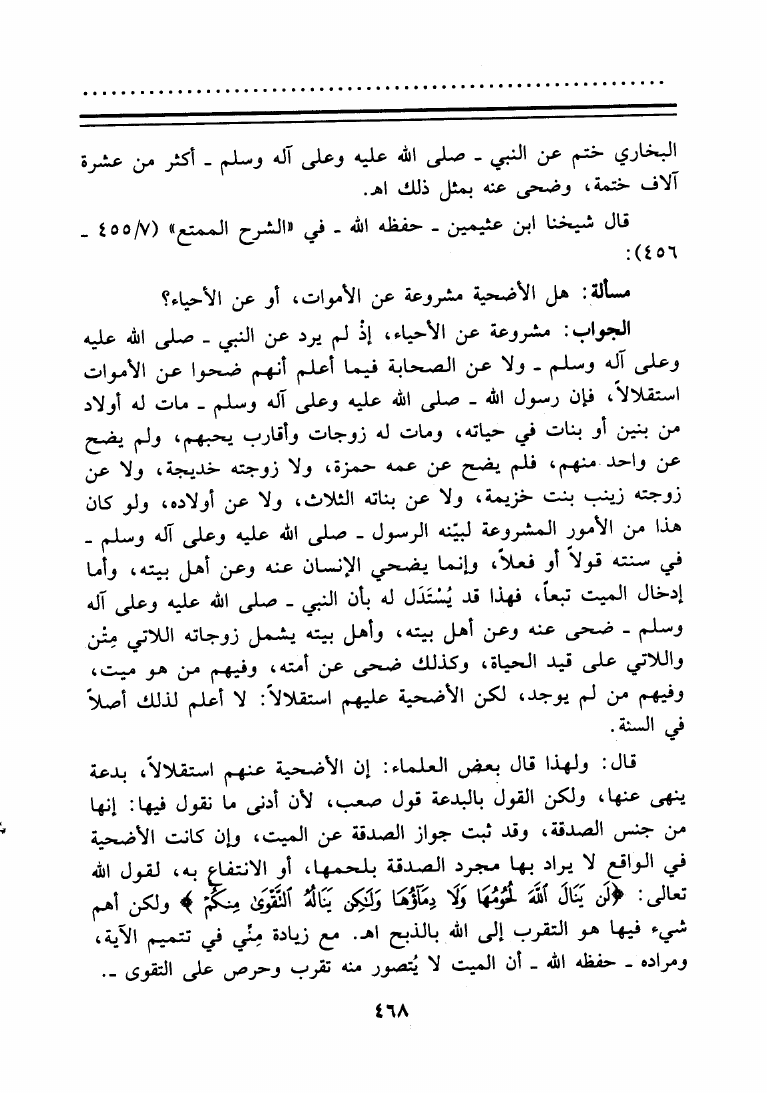 البخاري ختم عن النبي - صلى الله عليه وعلى آله وسلم - أكثر من عشرة
آلاف ختمة، وضحى عنه بمثل ذلك اهـ.
قال شيخنا ابن عثيمين - حفظه الله - في «الشرح الممتع» (٤٥٥/٧ -
٤٥٦):
مسألة: هل الأضحية مشروعة عن الأموات، أو عن الأحياء؟
الجواب: مشروعة عن الأحياء، إذْ لم يرد عن النبي - صلى الله عليه
وعلى آله وسلم - ولا عن الصحابة فيما أعلم أنهم ضحوا عن الأموات
استقلالاً، فإن رسول الله - صلى الله عليه وعلى آله وسلم - مات له أولاد
من بنين أو بنات في حياته، ومات له زوجات وأقارب يحبهم، ولم يضح
عن واحد منهم، فلم يضح عن عمه حمزة، ولا زوجته خديجة، ولا عن
زوجته زينب بنت خزيمة، ولا عن بناته الثلاث، ولا عن أولاده، ولو كان
هذا من الأمور المشروعة لبيّنه الرسول - صلى الله عليه وعلى آله وسلم -
في سنته قولاً أو فعلاً، وإنما يضحي الإنسان عنه وعن أهل بيته، وأما
إدخال الميت تبعاً، فهذا قد يُسْتَدَل له بأن النبي - صلى الله عليه وعلى آله
وسلم - ضحى عنه وعن أهل بيته، وأهل بيته يشمل زوجاته اللاتي مِتْن
واللاتي على قيد الحياة، وكذلك ضحى عن أمته، وفيهم من هو ميت،
وفيهم من لم يوجد، لكن الأضحية عليهم استقلالاً: لا أعلم لذلك أصلاً
في السنة.
قال: ولهذا قال بعض العلماء: إن الأضحية عنهم استقلالاً، بدعة
ينهى عنها، ولكن القول بالبدعة قول صعب، لأن أدنى ما نقول فيها: إنها
من جنس الصدقة، وقد ثبت جواز الصدقة عن الميت، وإن كانت الأضحية
في الواقع لا يراد بها مجرد الصدقة بلحمها، أو الانتفاع به، لقول الله
تعالى: ﴿لَن يَنَالَ ٱللَّهَ لُحُومُهَا وَلَا دِمَآؤُهَا وَلَٰكِن يَنَالُهُ ٱلتَّقْوَىٰ مِنكُمْ﴾ ولكن أهم
شيء فيها هو التقرب إلى الله بالذبح اهـ. مع زيادة مِنِّي في تتميم الآية،
ومراده - حفظه الله - أن الميت لا يُتصور منه تقرب وحرص على التقوى -.
٤٦٨